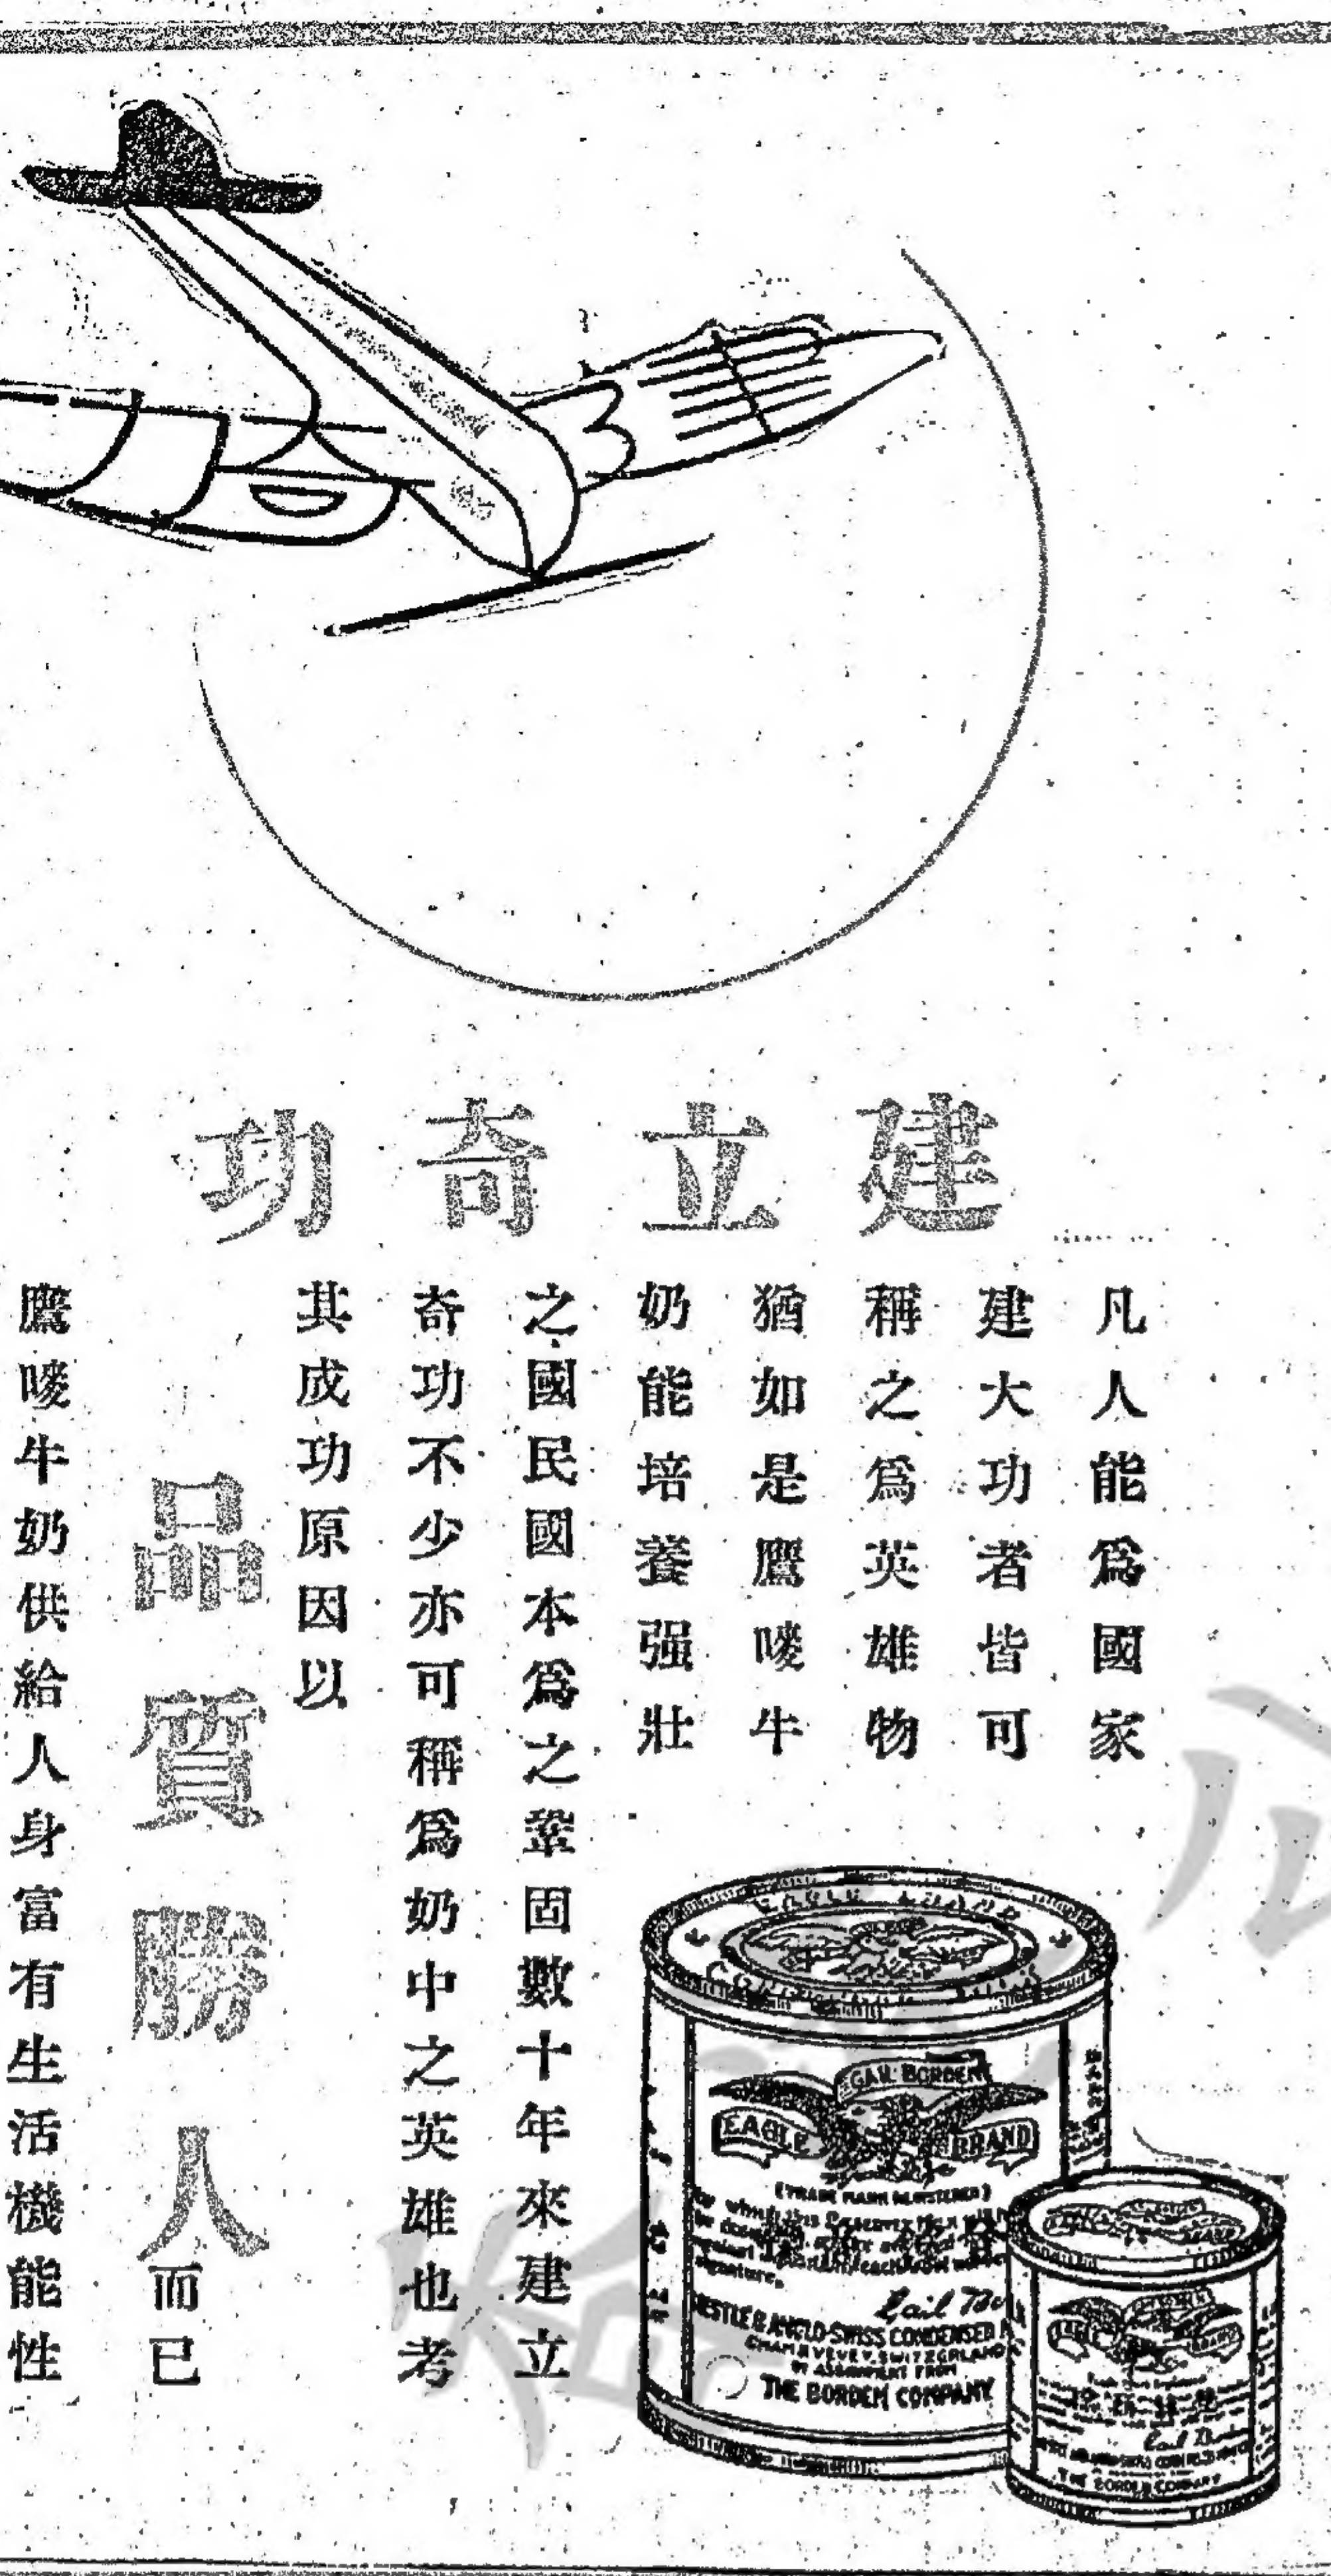 建立奇功
凡人能爲國家
建大功者皆可
稱之爲英雄物
猶如是鷹嘜牛
奶能培養强壯
之國民國本爲之鞏固數十年來建立
奇功不少亦可稱爲奶中之英雄也考
其成功原因以
品質勝人而已
鷹嘜牛奶供給人身富有生活機能性
EAGLE BRAND
GAIL BORDEN
EAGLE BRAND
(TRADE MARK REGISTERED)
signature.
Gail
NESTLE & ANGLO-SWISS CONDENSED
CHAM & VEVEY, SWITZERLAND
BY ASSIGNMENT FROM
THE BORDEN COMPANY
THE BORDEN COMPANY